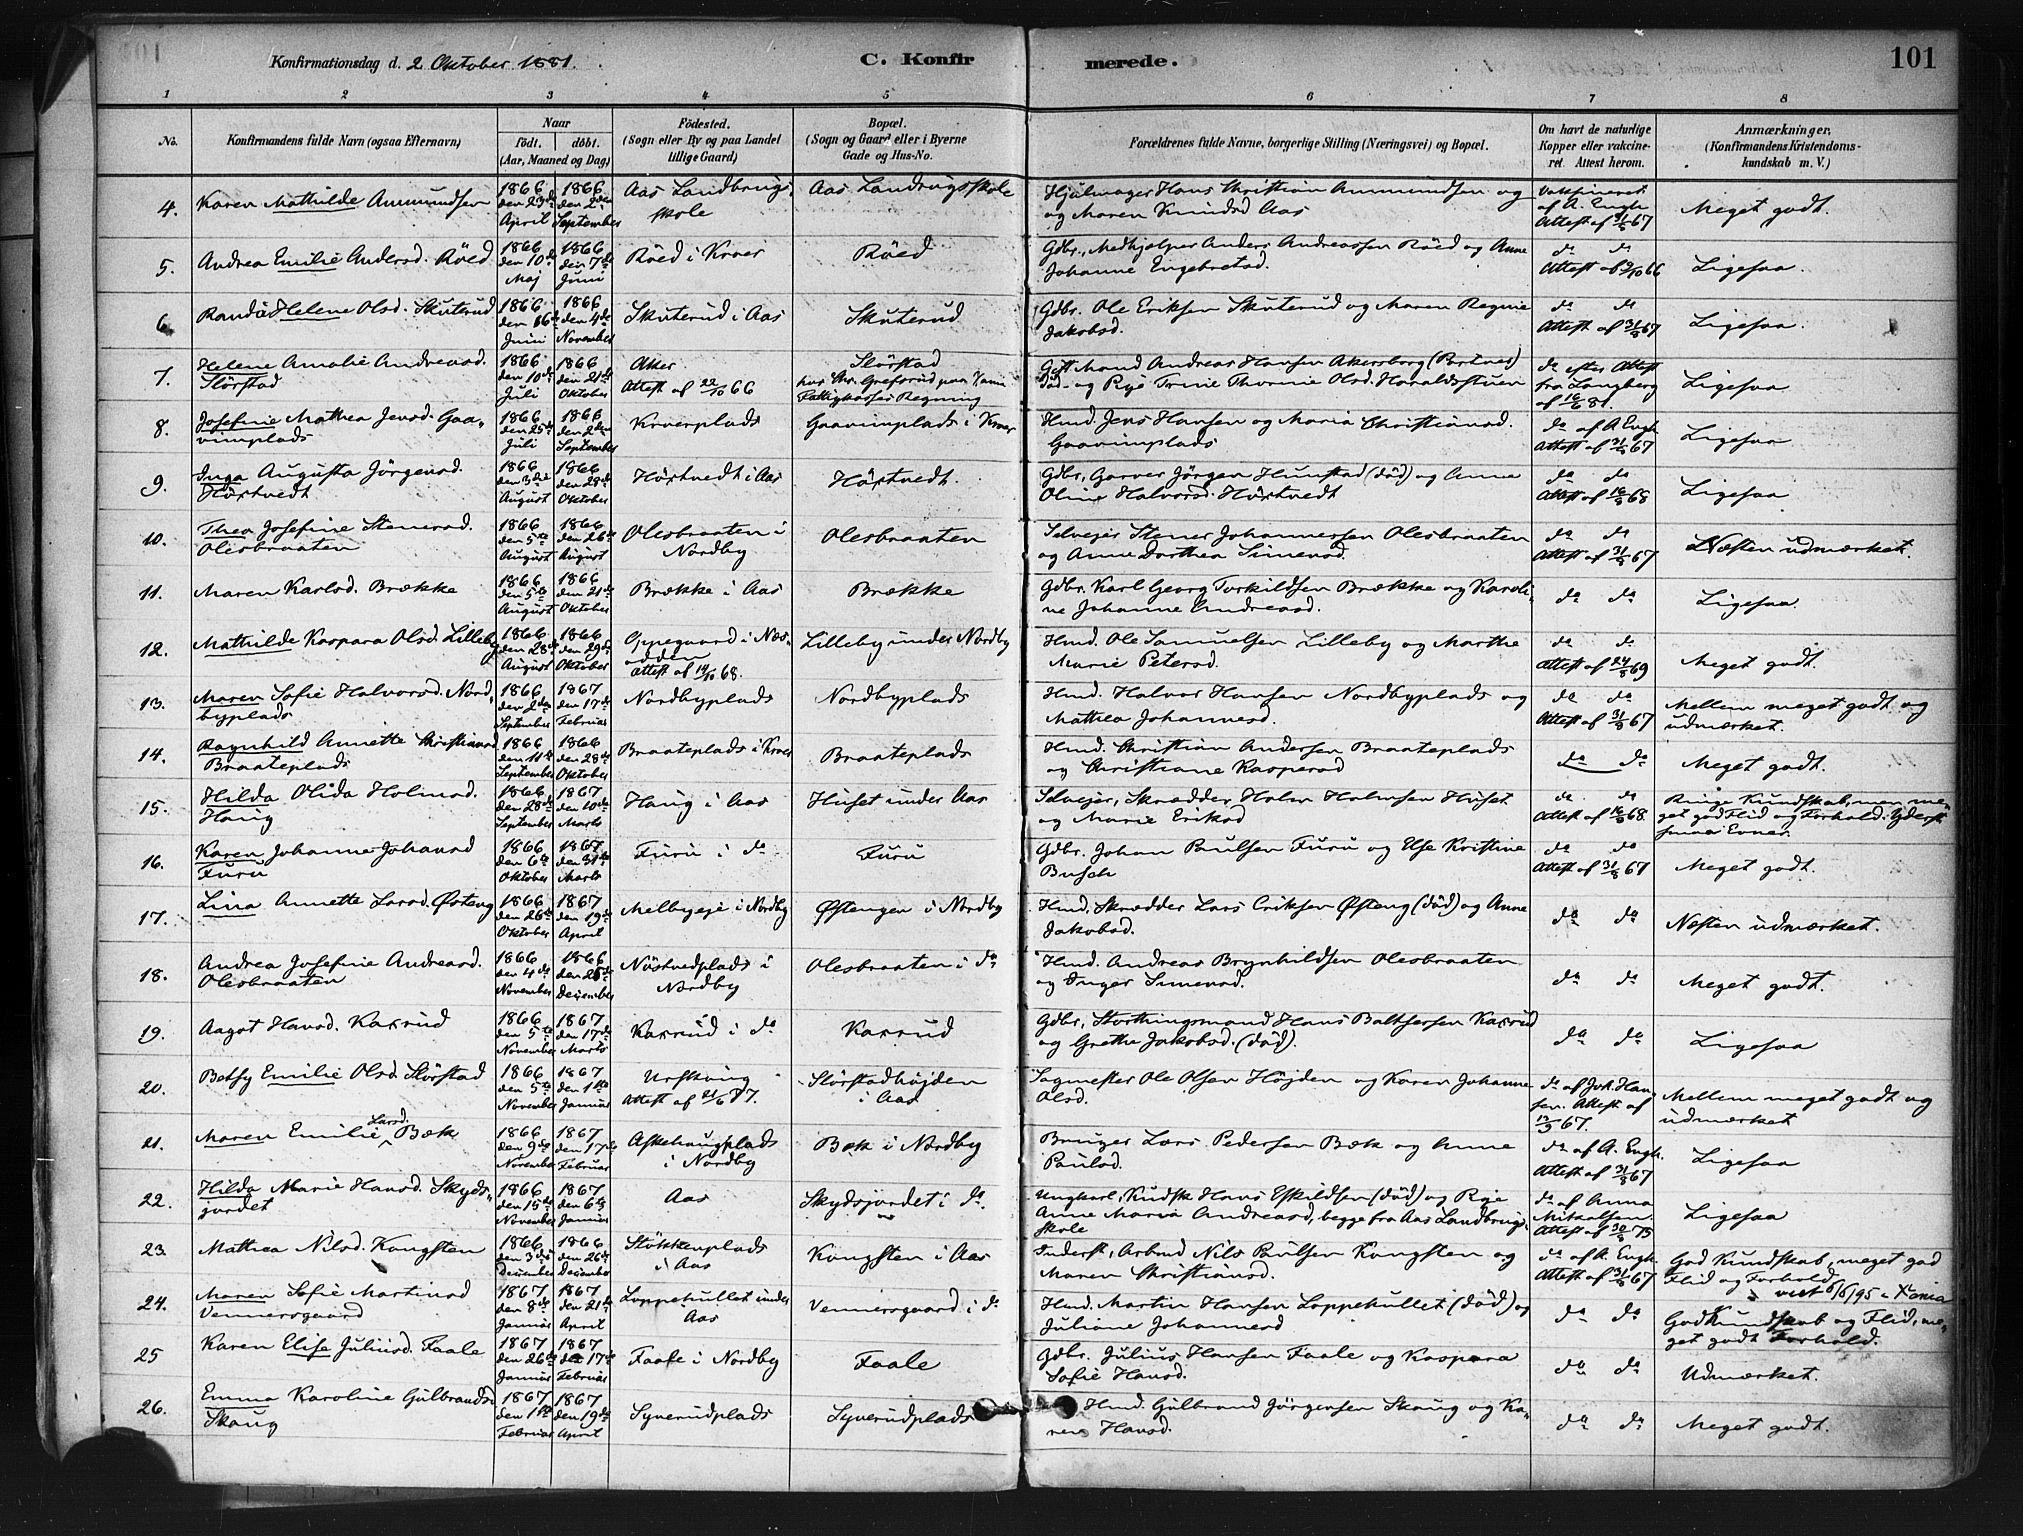 Konfirmationsdag d. 2 Oktober 1881.
C. Konfirmerede.
101
1 2 3 4 5 6 7 8
No.
Konfirmandens fulde Navn (ogsaa Efternavn)
Naar
født. døbt.
(Aar, Maaned og Dag)
Fødested.
(Sogn eller By og paa Landet
tillige Gaard)
Bopæl.
(Sogn og Gaard eller i Byerne
Gade og Hus-No.
Forældrenes fulde Navne, borgerlige Stilling (Næringsvei) og Bopæl.
Om havt de naturlige
Kopper eller vakcine-
ret. Attest herom.
Anmærkninger.
(Konfirmandens Kristendoms-
kundskab m. V.)
4. Karen Mathilde Ammundsen
1866 den 23de April
1866 den 2den September
Aas Landbrugs-
skole
Aas Landrugsskole
Hjulmager Hans Christian Ammundsen og
og Maren Knudsd Aas
Vakcineret
af A. Engh
Attest af 31/8 67
Meget godt.
5. Andrea Emilie Andersd. Røed
1866 den 10de Maj
1866 den 7de Juni
Røed i Kroer
Røed
Gdbr., Medhjælper Anders Andreassen Røed og Anne
Johanne Engebretsd.
do do
Attest af 9/10 66
Ligesaa.
6. Randi Helene Olsd. Skuterud
1866 den 16de Juni
1866 den 4de November
Skuterud i Aas
Skuterud
Gdbr. Ole Eriksen Skuterud og Maren Regine
Jakobsd.
do do
Attest af 31/8 67
Ligesaa.
7. Helene Amalie Andreasd.
Slørstad
1866 den 10de Juli
1866 den 21de Oktober
Aker
Attest af 22/10 66
Slørstad
hos Chr. Greferud paa
Fattigkasses Regning
Gift Mand Andreas Hansen Akersborg
død. og Pige Trine Thomine Olsd. Haraldsstuen
do efter Attest
fra Langberg
af 16/6 81.
Ligesaa
8. Josefine Mathea Jensd. Gaa-
vimplads
1866 den 25de Juli
1866 den 2den September
Kroerplads
Gaavimplads i Kroer
Hmd. Jens Hansen og Maria Christiansd.
Gaavimplads
do af A Engh
Attest af 31/8 67
Ligesaa
9. Inga Augusta Jørgensd.
Høxtvedt
1866 den 3die August
1866 den 28de Oktober
Høxtvedt i Aas
Høxtvedt.
Gdbr., Garver Jørgen Hunstad (død) og Anne
Oline Halvorsd. Høxtvedt
do do
Attest af 16/9 68
Ligesaa
10. Thea Josefine Stenersd.
Olesbraaten
1866 den 5te August
1866 den 26de August
Olesbraaten i
Nordby
Olesbraaten
Selvejer Stener Johannessen Olesbraaten
og Anne Dorthea Simensd.
do do
Attest af 31/8 67
Næsten udmærket.
11. Maren Karlsd. Brække
1866 den 5te August
1866 den 21de Oktober
Brække i Aas
Brække
Gdbr. Karl Georg Torkildsen Brække og Karoli-
ne Johanne Andreasd.
do do
Ligesaa.
12. Mathilde Kaspara Olsd. Lilleby
1866 den 28de August
1866 den 29de Oktober
Oppegaard i Næs-
odden
Attest af 14/10 68.
Lilleby under Nordby
Hmd. Ole Samuelsen Lilleby og Marthe
Marie Petersd.
do do
Attest af 24/8 69
Meget godt.
13. Maren Sofie Halvorsd. Nord-
byplads
1866 den 2den September
1867 den 17de Februar
Nordbyplads
Nordbyplads
Hmd. Halvor Hansen Nordbyplads og
Mathea Johannesd.
do do
Attest af 31/8 67
Mellem meget godt og
udmærket.
14. Ragnhild Annette Christiansd
Braateplads
1866 den 11te September
1866 den 28de Oktober
Braateplads i Kroer
Braateplads
Hmd. Christian Andersen Braateplads
og Christiane Kaspersd
do do
Meget godt.
15. Hilda Olida Holmsd.
Haug
1866 den 28de September
1867 den 10de Marts
Haug i Aas
Huset under Aas
Selvejer, Skrædder Holm Holmsen Huset
og Marie Eriksd
do do
Attest af 16/9 68
Ringe Kundskab, men me-
get god Flid og Forhold. Yderst
smaa Evner.
16. Karen Johanne Johansd
Furu
1866 den 6te Oktober
1867 den 31te Marts
Furu i do
Furu
Gdbr. Johan Paulsen Furu og Else Kristine
Busch
do do
Attest af 31/8 67
Meget godt.
17. Lina Annette Larsd. Østeng
1866 den 26de Oktober
1867 den 19de April
Melbyeje i Nordby
Østengen i Nordby
Hmd. Skrædder Lars Eriksen Østeng (død) og Anne
Jakobsd.
do do
Næsten udmærket.
18. Andrea Josefine Andreasd.
Olesbraaten
1866 den 4de November
1866 den 26de December
Nøstvedplads i
Nordby
Olesbraaten i do
Hmd. Andreas Brynhildsen Olesbraaten
og Inger Simensd.
do do
Meget godt.
19. Aagot Hansd. Kaxrud
1866 den 5te November
1867 den 17de Marts
Kaxrud i do
Kaxrud
Gdbr., Storthingsmand Hans Baltsersen Kaxrud
og Grethe Jakobsd. (død).
do do
Ligesaa
20. Betsy Emilie Olsd. Slørstad
1866 den 5te November
1867 den 1ste Januar
Urskoug
Attest af 21/6 77.
Slørstadhøjden
i Aas
Sagmester Ole Olsen Højden og Karen Johanne
Olsd.
do af Joh. Han-
sen. Attest af
13/9 67.
Mellem meget godt og
udmærket
21. Maren Emilie Larsd. Bæk
1866 den 9de November
1867 den 17de Februar
Askehaugplads
i Nordby
Bæk i Nordby
Bruger Lars Pedersen Bæk og Anne
Paulsd.
do af A. Engh.
Attest af 31/8 67
Ligesaa
22. Hilda Marie Hansd. Skyds-
jordet
1866 den 15de November
1867 den 6te Januar
Aas
Skydsjordet i do.
Ungkarl, Kudsk Hans Eskildsen (død) og Pige
Anne Maria Andreasd, begge fra Aas Landbrugs-
skole
do af Anna
Mikalsen
Attest af 30/8 75
Ligesaa
23. Mathea Nilsd. Kongsten
1866 den 3die December
1866 den 26de December
Støkkenplads
i Aas
Kongsten i Aas
Inderst, Arbmd Nils Paulsen Kongsten og
Maren Christiansd.
do af A. Engh.
Attest af 31/8 67
God Kundskab, meget god
Flid og Forhold
viet 6/6/95 i Xania
24. Maren Sofie Martinsd
Vennersgaard
1867 den 8de Januar
1867 den 21de April
Loppehullet under
Aas
Vennersgaard i do
Hmd. Martin Hansen Loppehullet (død) og
Juliane Johannesd
do do
God Kundskab og Flid, me-
get godt Forhold.
25 Karen Elise Juliusd. Faale
1867 den 26de Januar
1867 den 17de Februar
Faale i Nordby
Faale
Gdbr. Julius Hansen Faale og Kaspara
Sofie Hansd.
do do
Udmærket.
26. Emma Karoline Gulbrandsd
Skaug
1867 den 1ste Februar
1867 den 19de April
Syverudplads
Syverudplads
Hmd. Gulbrand Jørgensen Skaug og Ka-
ren Hansd.
do do
Meget godt.